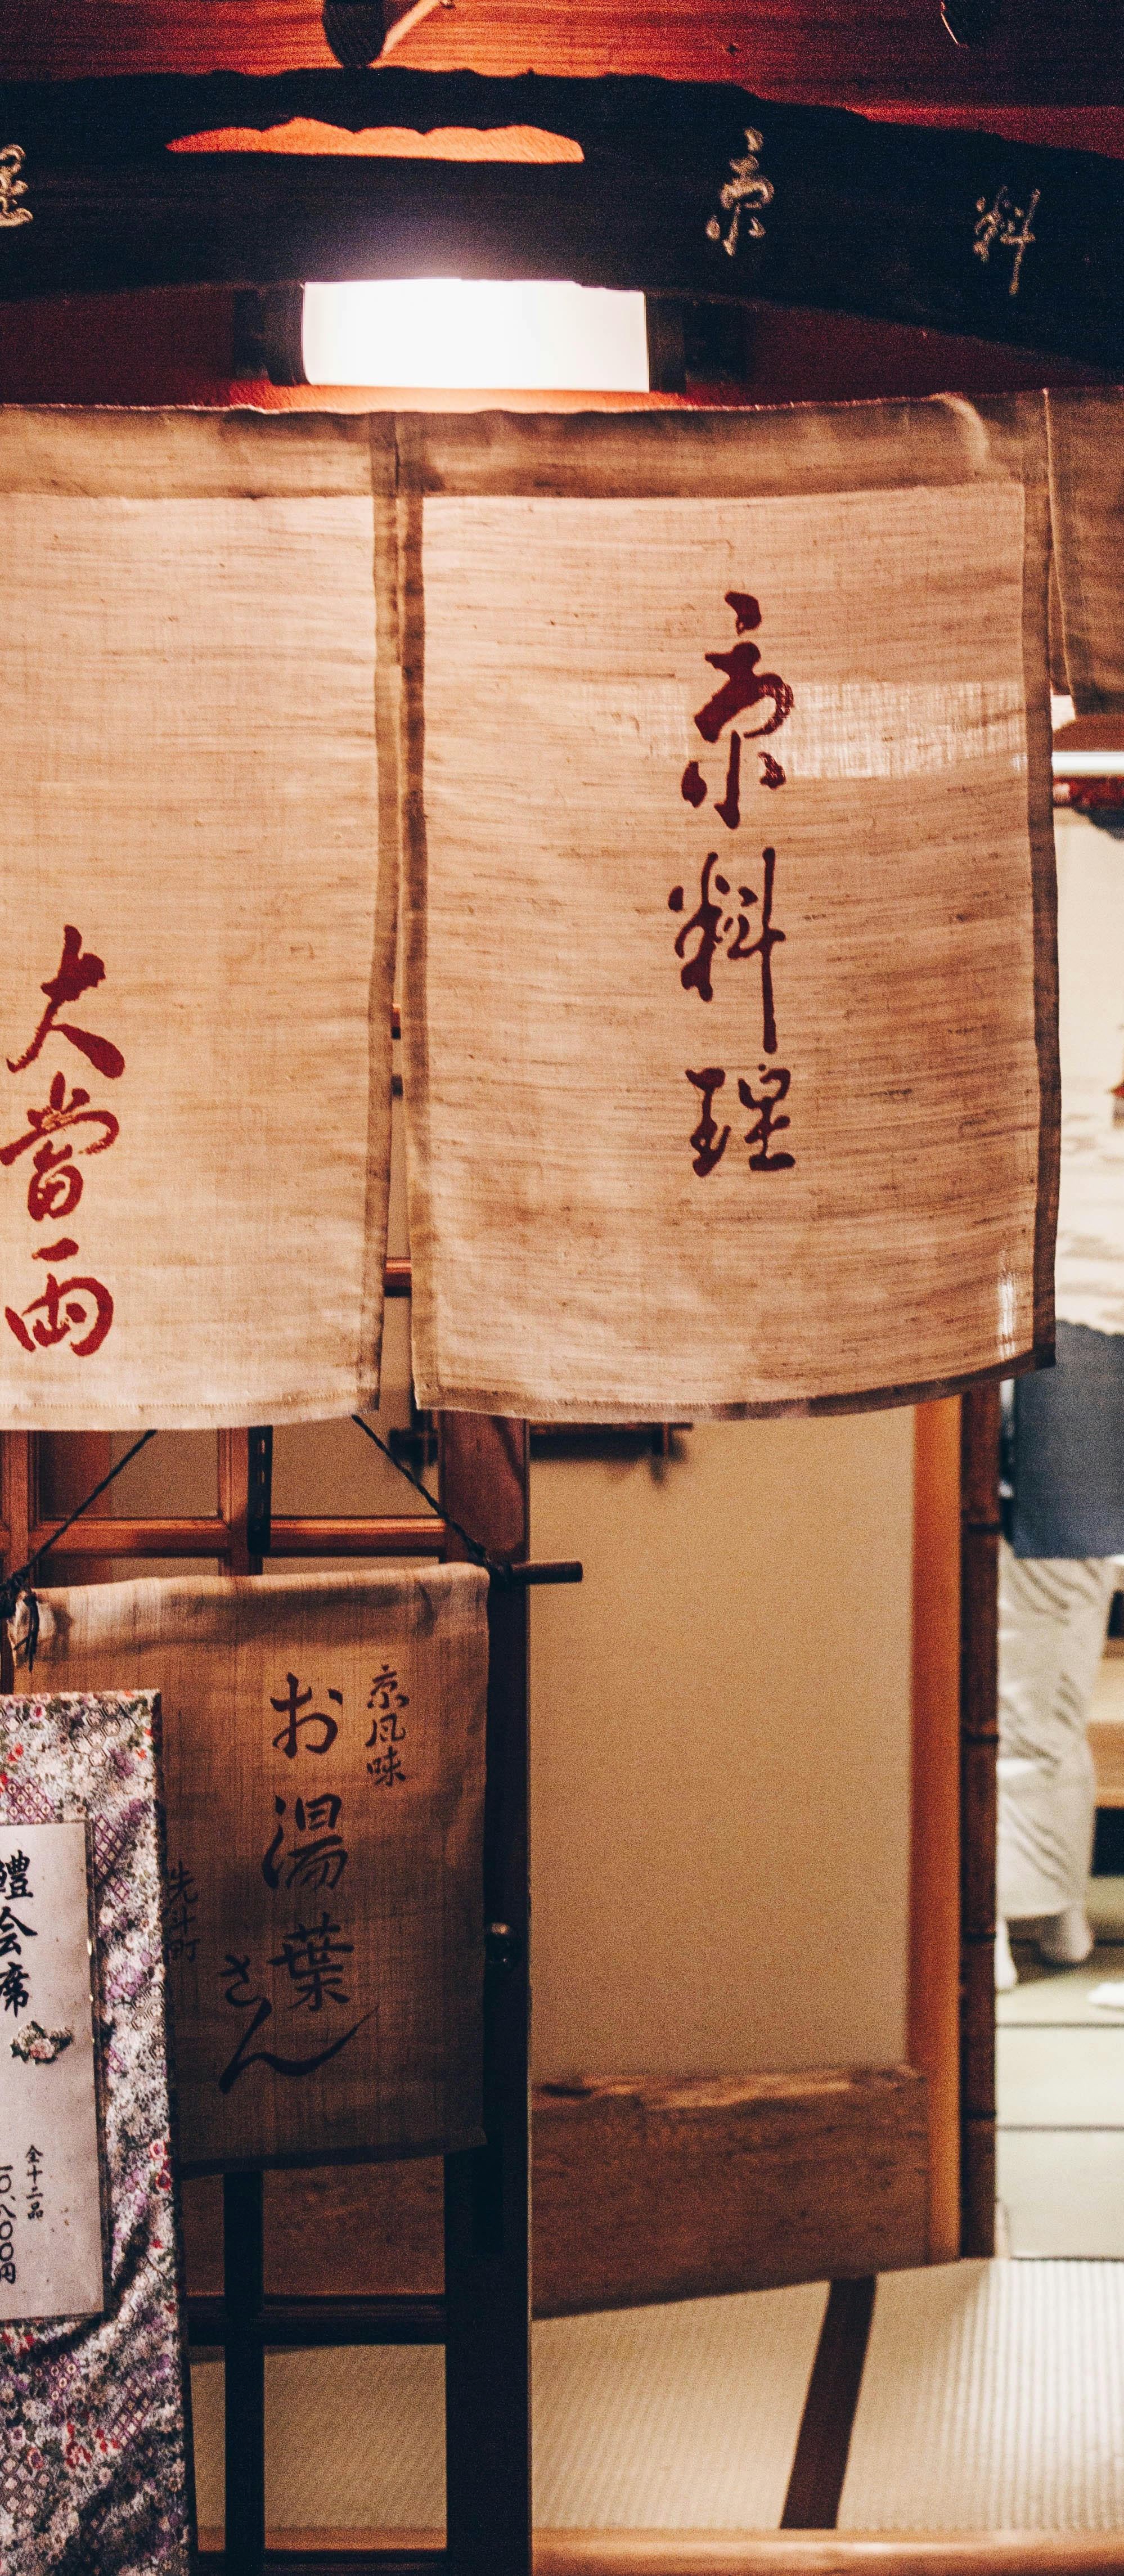 京料
京料理
大當両
京風味
お湯葉
さん
先斗町
鱧会席
全十二品
一〇、八〇〇円